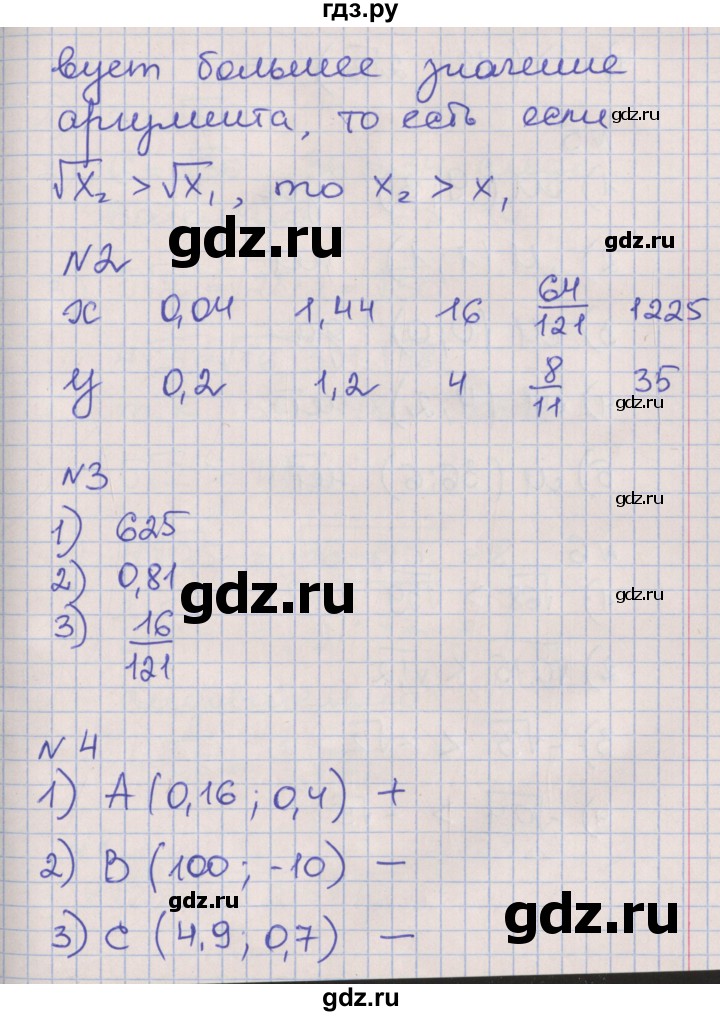 гдз.ру
вует большее значение
аргумента, то есть если
gdz.ru
√x₂ > √x₁, то x₂ > x₁
gdz.ru
gdz.ru
gdz.ru
N2
x 0,04 1,44 16 64/121 1225
gdz.ru
y 0,2 1,2 4 8/11 35
gdz.ru
N3
gdz.ru
1) 625
2) 0,81
gdz.ru
gdz.ru
3) 16/121
N 4
1) A (0,16 ; 0,4) +
2) B (100 ; -10) −
gdz.ru
gdz.ru
3) C (4,9 ; 0,7) −
gdz.ru